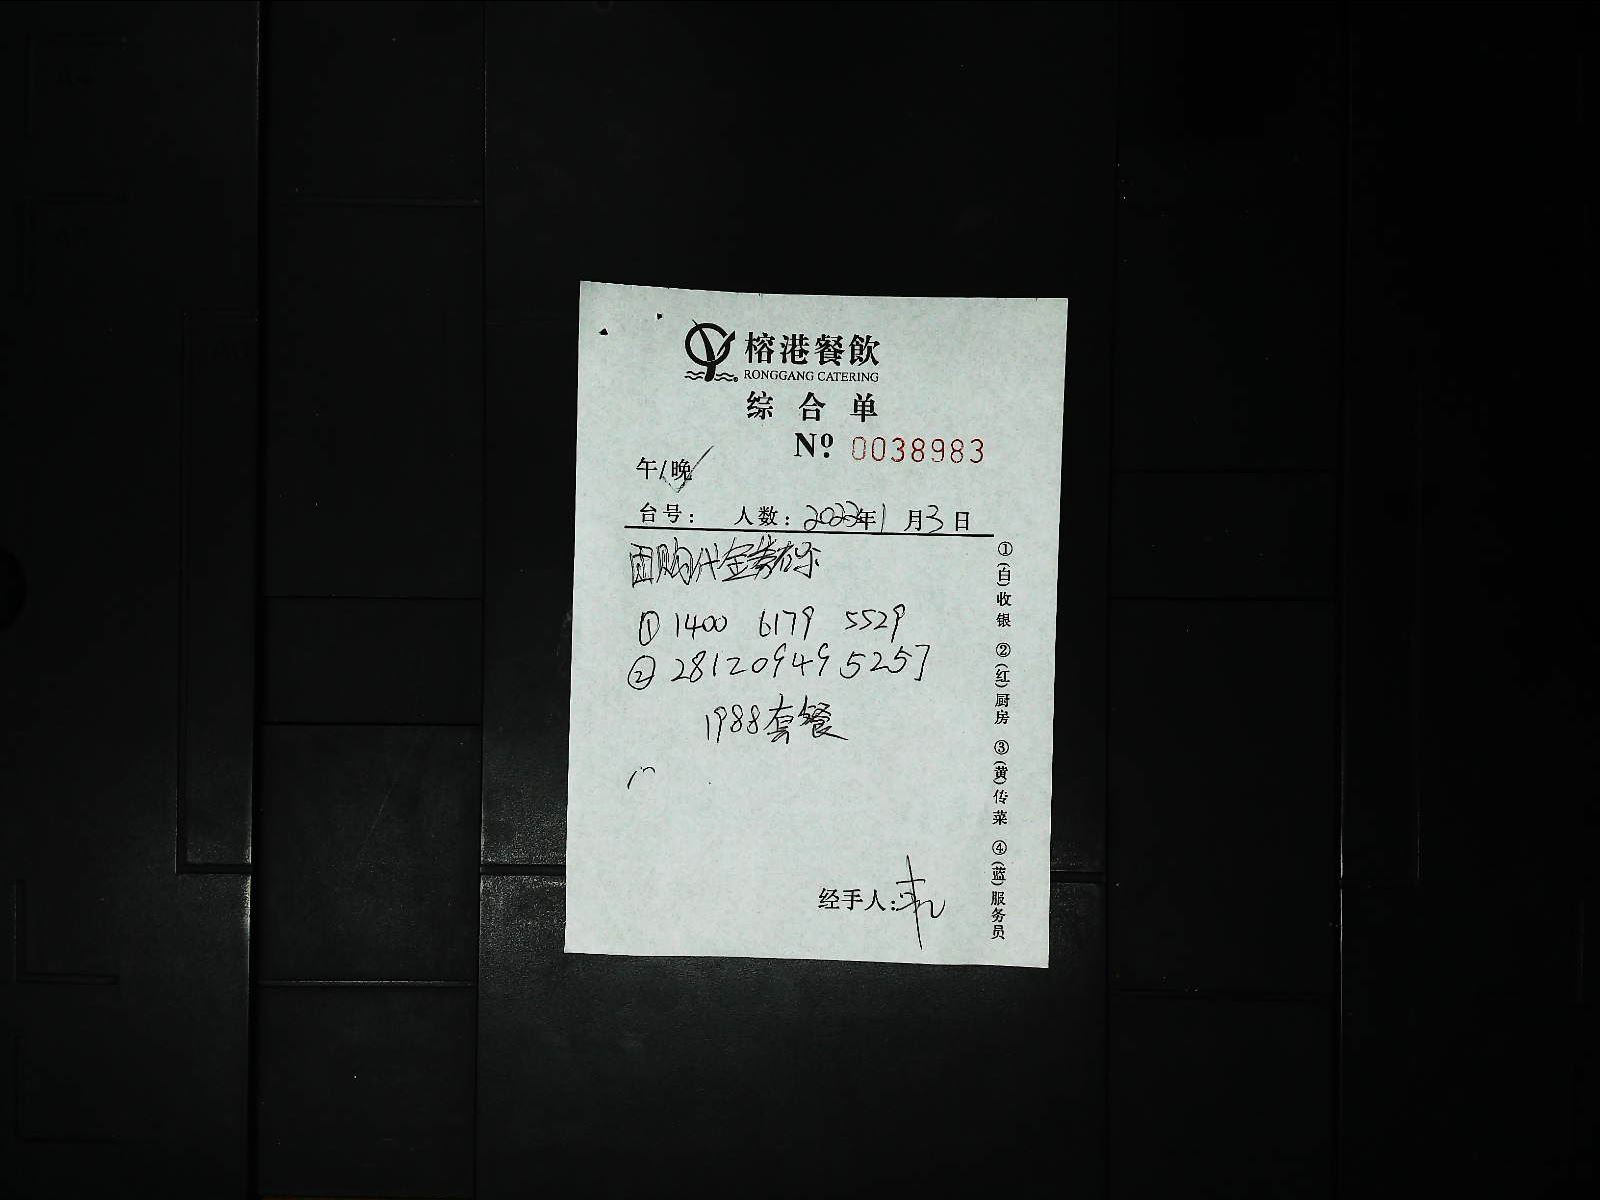 榕港餐飲
RONGGANG CATERING
综合单
Nº 0038983
午/晚
台号: 人数: 2022年1月3日
团购代金券
① 1400 6179 5529
② 2812 0949 5257
1988套餐
经手人:
①(白)收银 ②(红)厨房 ③(黄)传菜 ④(蓝)服务员